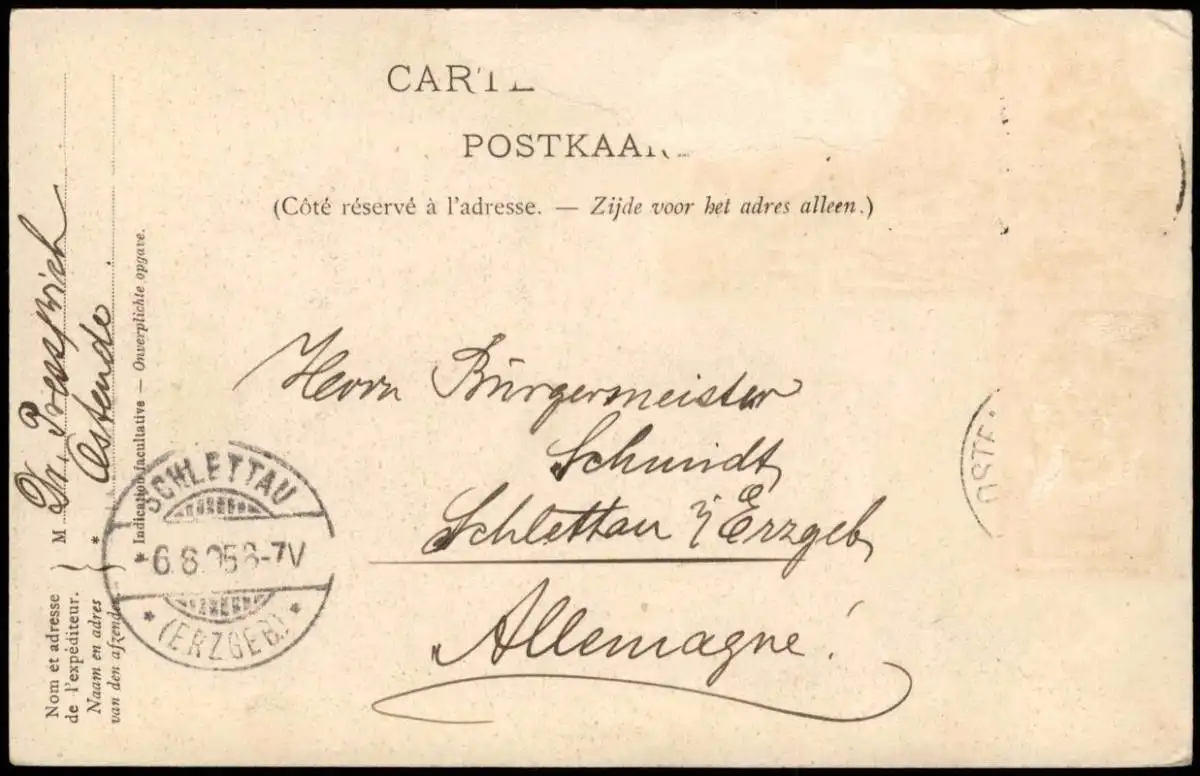 CARTE
POSTKAA
(Côté réservé à l'adresse. — Zijde voor het adres alleen.)
Herrn Bürgermeister
Schmidt
Schlettau i/Erzgeb
Allemagne!
Ostende
M
* Indication facultative — Onverplichte opgave.
Nom et adresse
de l'expéditeur.
Naam en adres
van den afzender.
*
SCHLETTAU
6.8.05 6-7V
* (ERZGEB.) *
OSTE